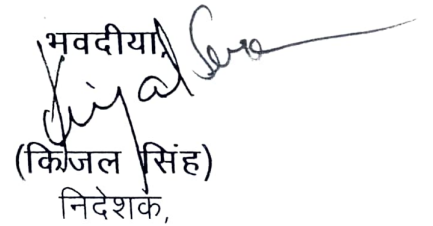 भवदीया,
(किंजल सिंह)
निदेशक,